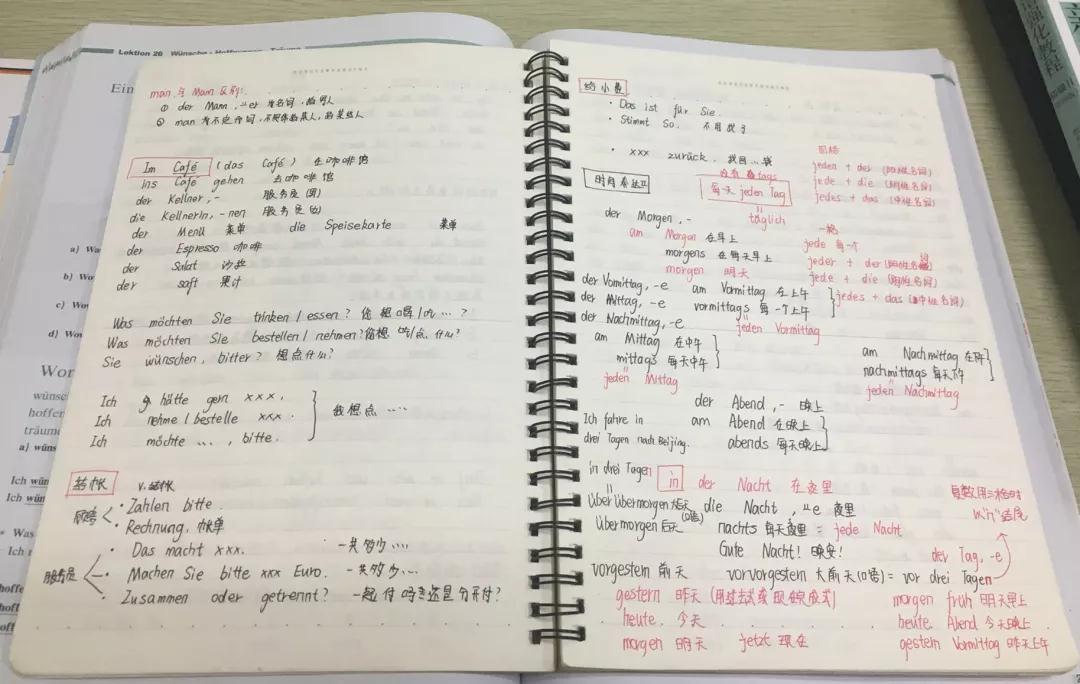 Lektion 26 Wünsche · Hoffnungen · Träume
Ein
a) Wa
b) Wo
c) Wo
d) Wo
Wor
wünsc
hoffer
träume
a) wüns
Ich wün
Ich wün
Was
Ich
hoffe
hoff
hoff
man 与 Mann 区别:
① der Mann, ⸚er 为名词,
② man 为不定代词, 不具体的某人,
Im Café (das Café) 在咖啡馆
ins Café gehen 去咖啡馆
der Kellner, - 服务员(男)
die Kellnerin, -nen 服务员(女)
der Menü 菜单 die Speisekarte 菜单
der Espresso 咖啡
der Salat 沙拉
der saft 果汁
Was möchten Sie trinken / essen? 你想喝/吃…?
Was möchten Sie bestellen / nehmen? 你想吃/点什么?
Sie wünschen, bitter? 想点什么?
Ich hätte gern xxx.
Ich nehme / bestelle xxx.
Ich möchte ..., bitte.
我想点 ....
结帐 v. 结帐
顾客
· Zahlen bitte.
· Rechnung, 帐单
服务员
· Das macht xxx. 一共多少....
· Machen Sie bitte xxx Euro. 一共多少...
· Zusammen oder getrennt? 一起付吗还是分开付?
给小费
· Das ist für Sie.
· Stimmt So. 不用找了
· xxx zurück. 找回...钱
时间表达
每天 jeden Tag
täglich
四格
jeden + der (阳性名词)
jede + die (阴性名词)
jedes + das (中性名词)
der Morgen, -
am Morgen 在早上
morgens 在每天早上
morgen 明天
一格
jede 每一个
jeder + der (阳性名词)
jede + die (阴性名词)
jedes + das (中性名词)
der Vormittag, -e am Vormittag 在上午
der Mittag, -e vormittags 每一个上午
der Nachmittag, -e jeden Vormittag
am Mittag 在中午
mittags 每天中午
jeden Mittag
am Nachmittag 在下午
nachmittags 每天下午
jeden Nachmittag
der Abend, - 晚上
Ich fahre in am Abend 在晚上
drei Tagen nach Beijing. abends 每天晚上
in drei Tagen in der Nacht 在夜里
Über übermorgen 大后天 (口语) die Nacht, ⸚e 夜里
Übermorgen 后天 nachts 每天夜里 = jede Nacht
Gute Nacht! 晚安!
复数用三格时
以"n"结尾
der Tag, -e
vorgestern 前天 vorvorgestern 大前天(口语) = vor drei Tagen
gestern 昨天 (用过去式或现在完成式) morgen früh 明天早上
heute. 今天 heute. Abend 今天晚上
morgen 明天 jetzt 现在 gestern Vormittag 昨天上午
强化教程